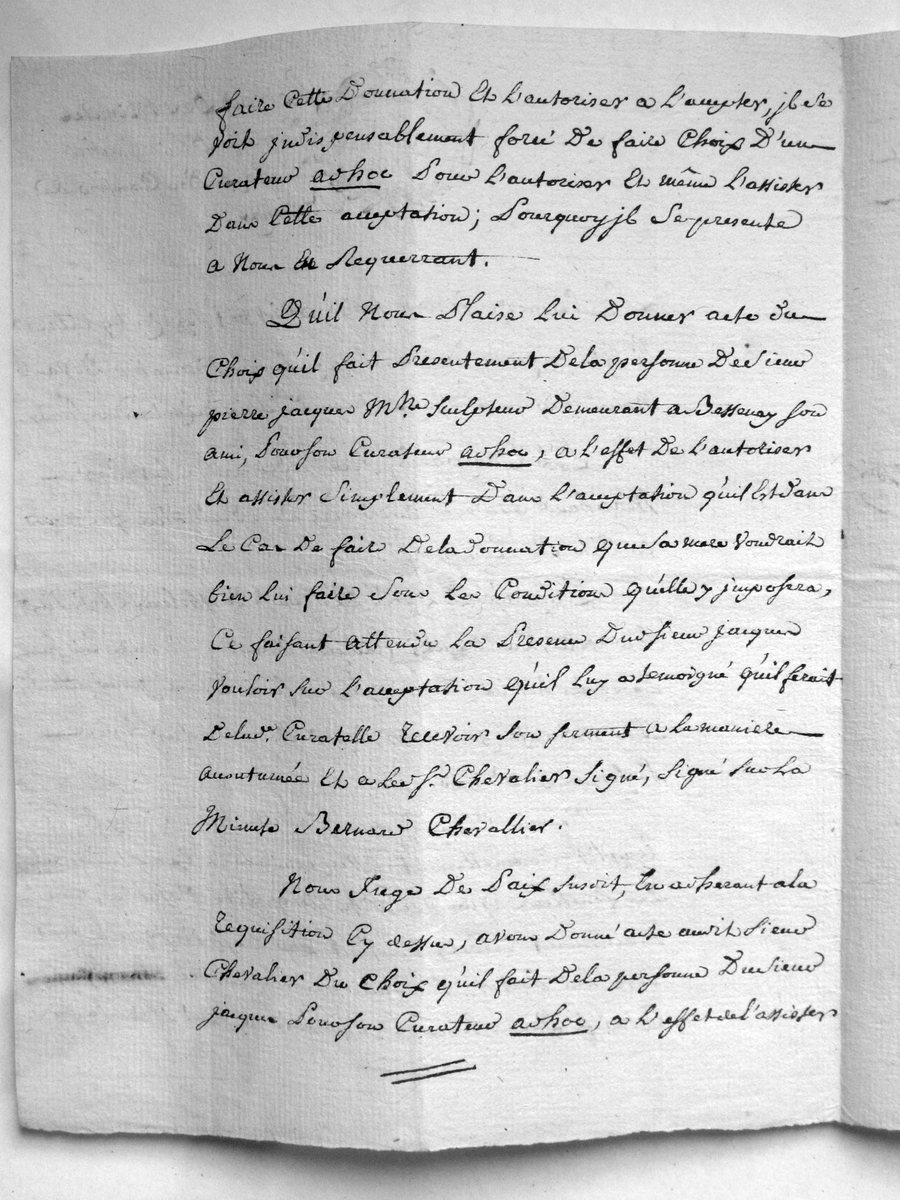 faire Cette Donnation Et L'autoriser a L'accepter, jl Se
voit jndispensablement forcé De faire Choix D'un
Curateur adhoc Pour L'autoriser Et même L'assister
Dans Cette acceptation; Pourquoy jl Se presente
a Nous En Requerrant.
Qu'il Nous Plaise Lui Donner acte du
Choix qu'il fait Presentement De la personne De Sieur
pierre jacques Mtre Sculpteur Demeurant a Bessenay Son
ami, Pour Son Curateur adhoc, a L'effet De L'autoriser
Et assister Simplement Dans L'acceptation qu'il Est dans
Le Cas De fair De la donnation que Sa mere Voudrait
bien Lui faire Sous Les Conditions qu'elle y jmposera,
Ce faisant attendu La Presence Dud Sieur jacques
Vouloir Sur L'acceptation qu'il Luy a temoigné qu'il ferait
De lade. Curatelle recevoir Son serment a la maniere
accoutumée Et a Led Sr. Chevalier Signé, Signé Sur La
Minute Bernard Chevallier.
Nous Juge De Paix susdit, En adherant a la
requisition Cy dessus, avons Donné acte audit Sieur
Chevalier Du Choix qu'il fait De la personne Du Sieur
jacques Pour Son Curateur adhoc, a L'effet de l'assister